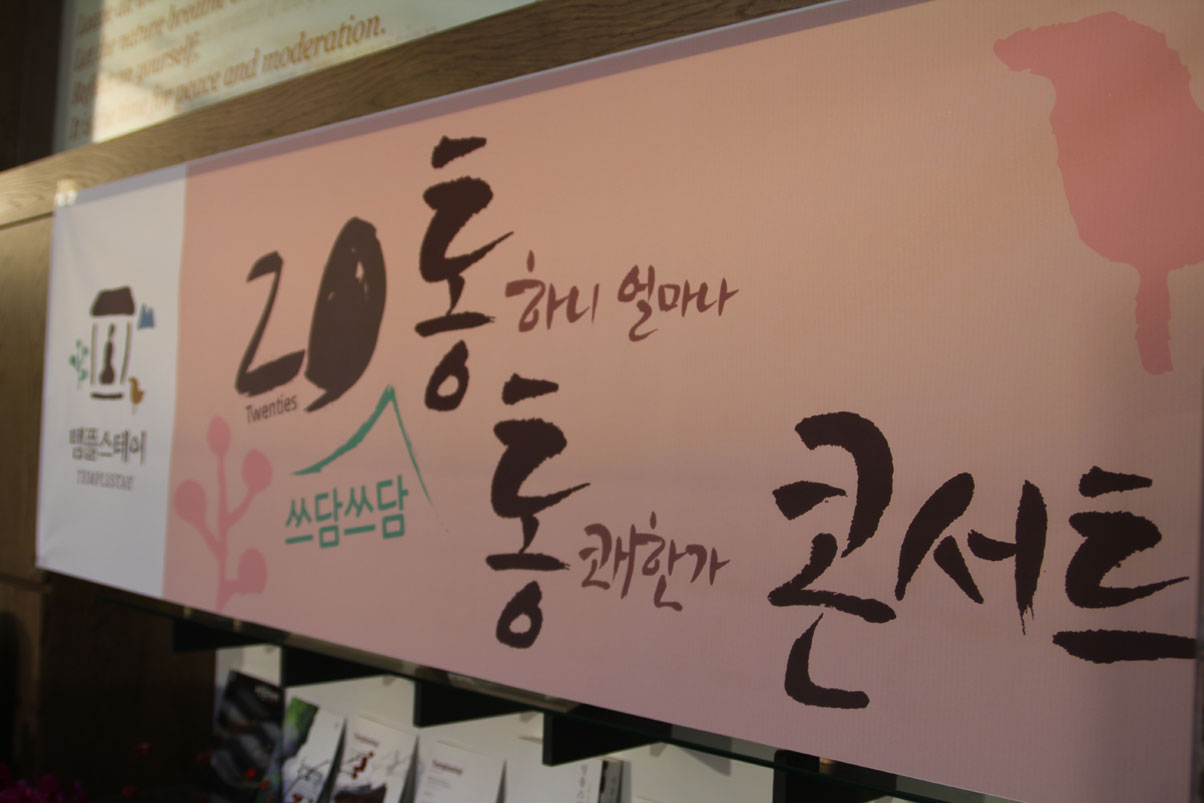 the nature breathe
yourself;
for peace and moderation.
템플스테이
TEMPLESTAY
20 통하니 얼마나
Twenties
쓰담쓰담
통쾌한가 콘서트